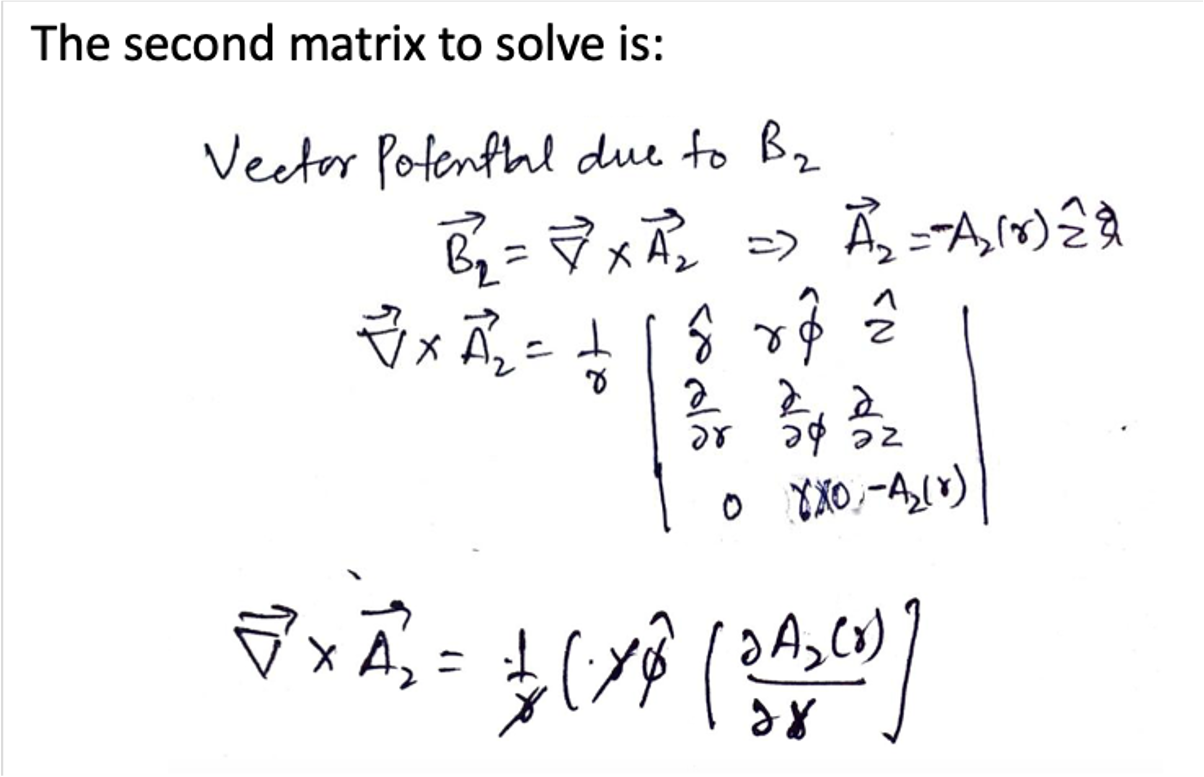 The second matrix to solve is:
Vector Potential due to B₂
B⃗₂ = ∇⃗ × A⃗₂ ⇒ A⃗₂ = -A₂(r) ẑ
∇⃗ × A⃗₂ = 1/r | r̂ rφ̂ ẑ |
∂/∂r ∂/∂φ ∂/∂z
0 r×0, -A₂(r)
∇⃗ × A⃗₂ = 1/r ( rφ̂ ( ∂A₂(r)/∂r ]